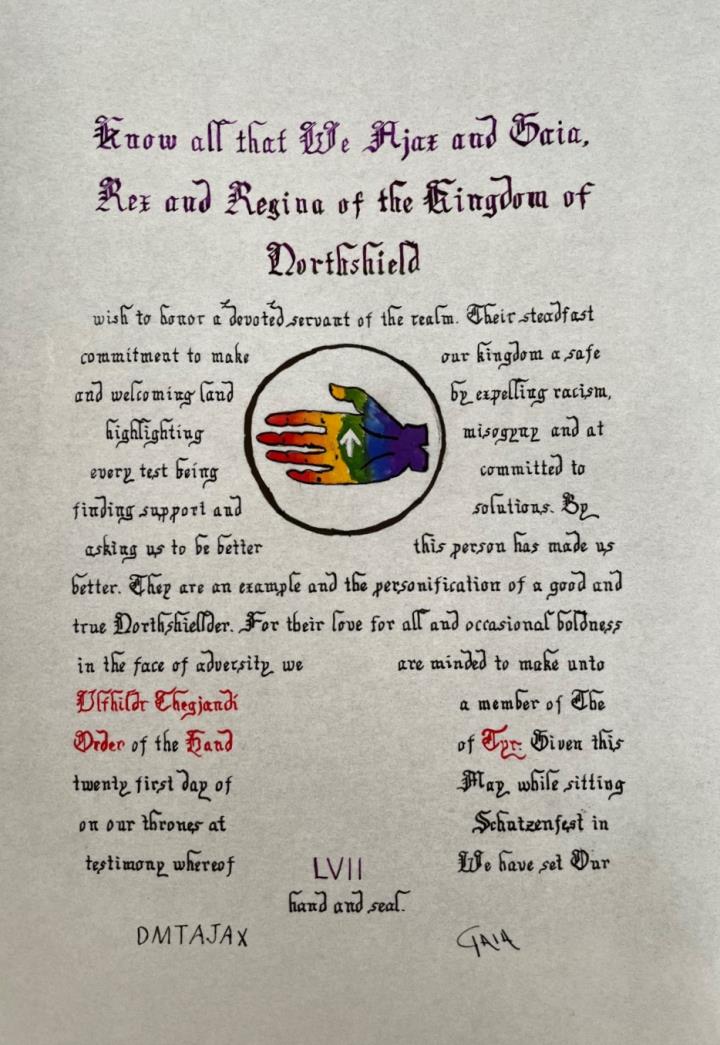 Know all that We Ajax and Gaia,
Rex and Regina of the Kingdom of
Northshield
wish to honor a devoted servant of the realm. Their steadfast
commitment to make our kingdom a safe
and welcoming land by expelling racism,
highlighting misogyny and at
every test being committed to
finding support and solutions. By
asking us to be better this person has made us
better. They are an example and the personification of a good and
true Northshielder. For their love for all and occasional boldness
in the face of adversity we are minded to make unto
Ulfhildr Thegjandi a member of The
Order of the Hand of Tyr. Given this
twenty first day of May while sitting
on our thrones at Schutzenfest in
testimony whereof LVII We have set Our
hand and seal.
DMTAJAX GAIA